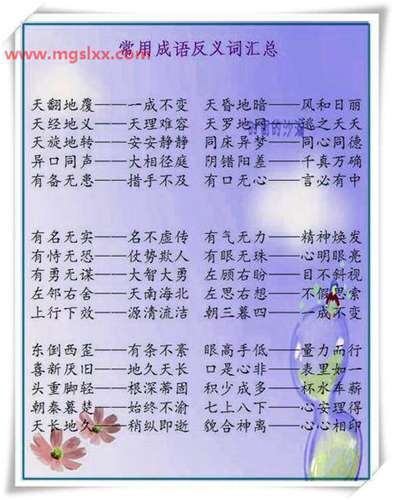 www.mgslxx.com
常用成语反义词汇总
天翻地覆——一成不变 天昏地暗——风和日丽
天经地义——天理难容 天罗地网——逃之夭夭
天旋地转——安安静静 同床异梦——同心同德
异口同声——大相径庭 阴错阳差——千真万确
有备无患——措手不及 有口无心——言必有中
有名无实——名不虚传 有气无力——精神焕发
有恃无恐——仗势欺人 有眼无珠——心明眼亮
有勇无谋——大智大勇 左顾右盼——目不斜视
左邻右舍——天南海北 左思右想——不假思索
上行下效——源清流洁 朝三暮四——一成不变
东倒西歪——有条不紊 眼高手低——量力而行
喜新厌旧——地久天长 口是心非——表里如一
头重脚轻——根深蒂固 积少成多——杯水车薪
朝秦暮楚——始终不渝 七上八下——心安理得
天长地久——稍纵即逝 貌合神离——心心相印